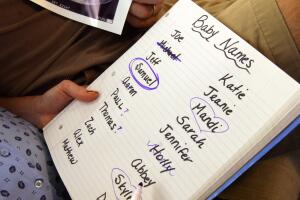 Baby Names
Joe
Jeff
Samuel
Darren
Paul?
Thomas?
Zach
Alex
Matthew
Katie
Jeanie
Mandi
Sarah
Jennifer
Holly
Abbey